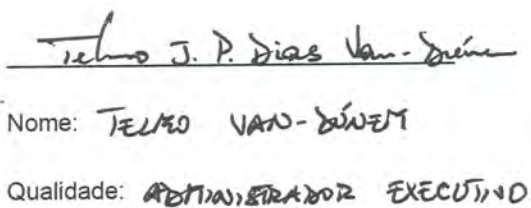 Telmo J. P. Dias Van-Dúnem
Nome: TELMO VAN-DÚNEM
Qualidade: ADMINISTRADOR EXECUTIVO